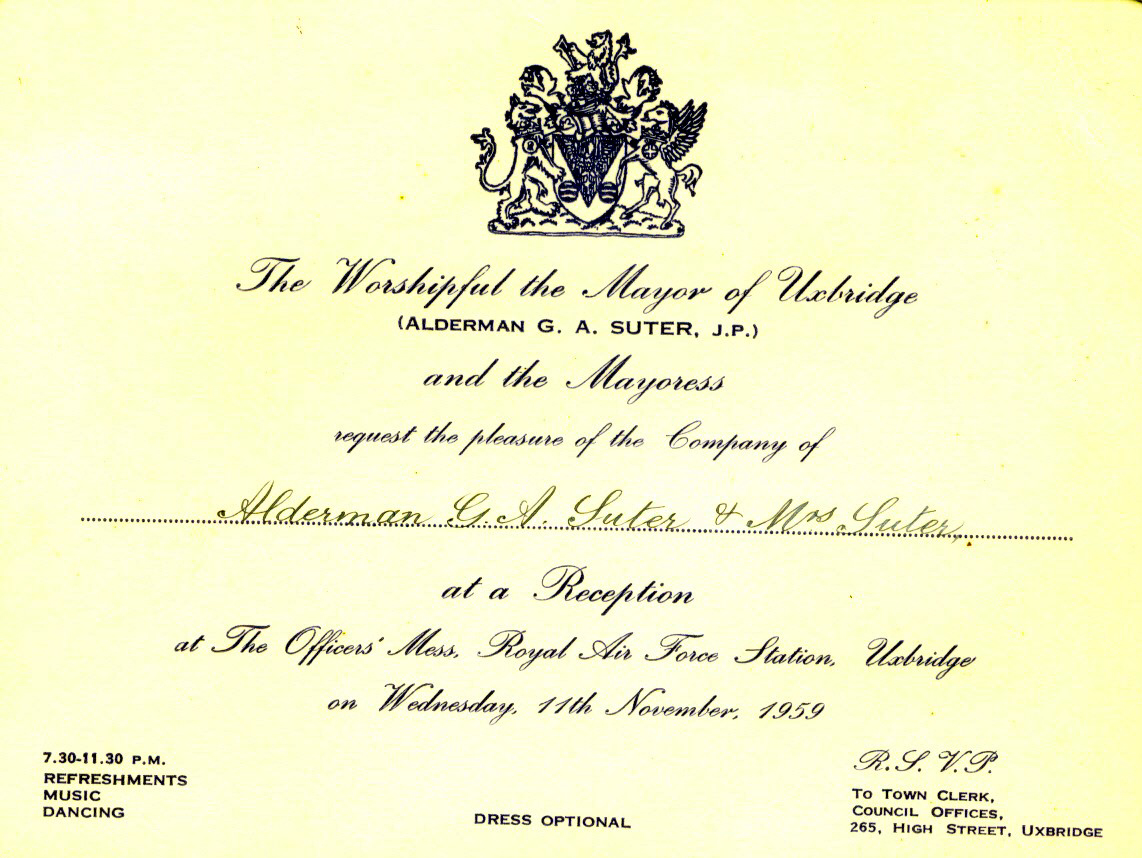 The Worshipful the Mayor of Uxbridge
(ALDERMAN G. A. SUTER, J.P.)
and the Mayoress
request the pleasure of the Company of
Alderman G. A. Suter & Mrs Suter,
at a Reception
at The Officers' Mess, Royal Air Force Station, Uxbridge
on Wednesday, 11th November, 1959
7.30-11.30 P.M.
REFRESHMENTS
MUSIC
DANCING
DRESS OPTIONAL
R.S.V.P.
TO TOWN CLERK,
COUNCIL OFFICES,
265, HIGH STREET, UXBRIDGE